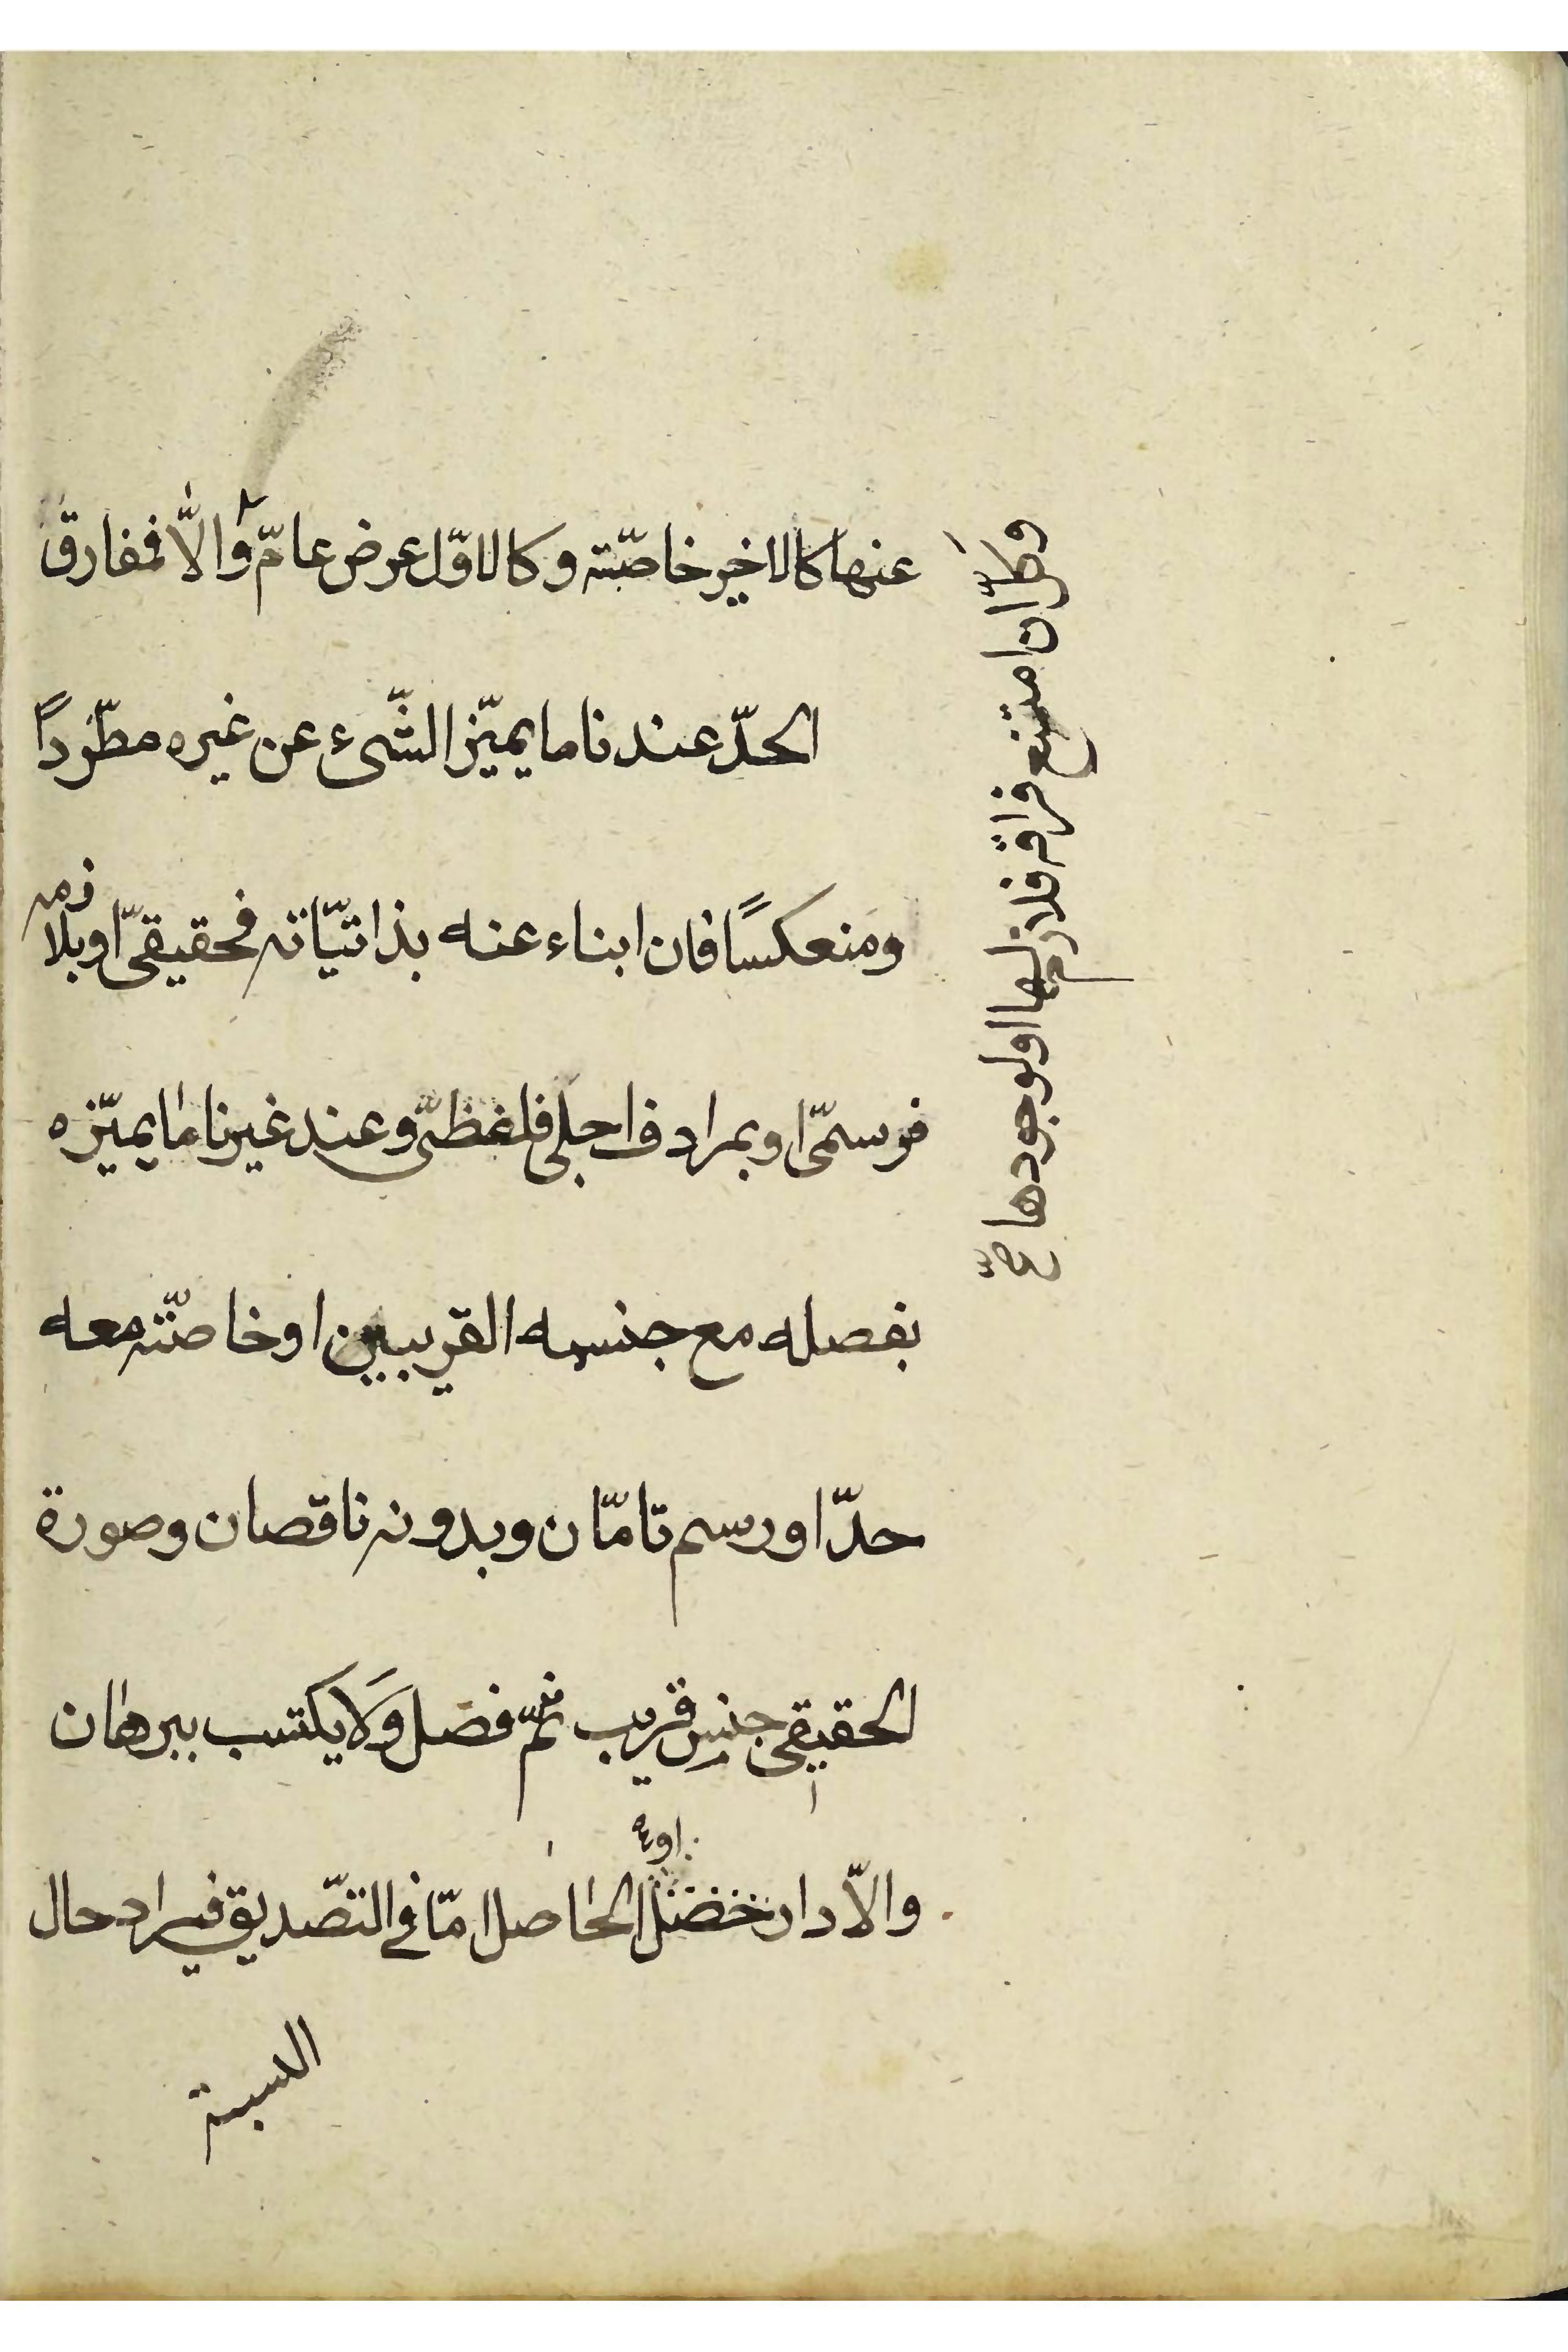 عنها كالاخير خاصّته وكالاوّل عرض عامّ والّا فمفارق
الحدّ عندنا ما يميّز الشّىء عن غيره مطّردًا
ومنعكسًا فان ابناء عنه بذاتيّاته فحقيقىّ او بلا
زمه
فرسمىّ او بمرادف اجلى فلفظىّ وعند غيرنا ما يميّزه
بفصله مع جنسه القريبين او خاصّته معه
حدّ او رسم تامّان وبدونه ناقصان وصورة
الحقيقى جنس قريب ثمّ فصل ولا يكتسب ببرهان
اوء
والّا دار خضنل الحاصل امّا فى التّصديق فيراد حال
النسبة
وكلّ ان امتنع فراقه فلازم لها او لوجودها صحّ